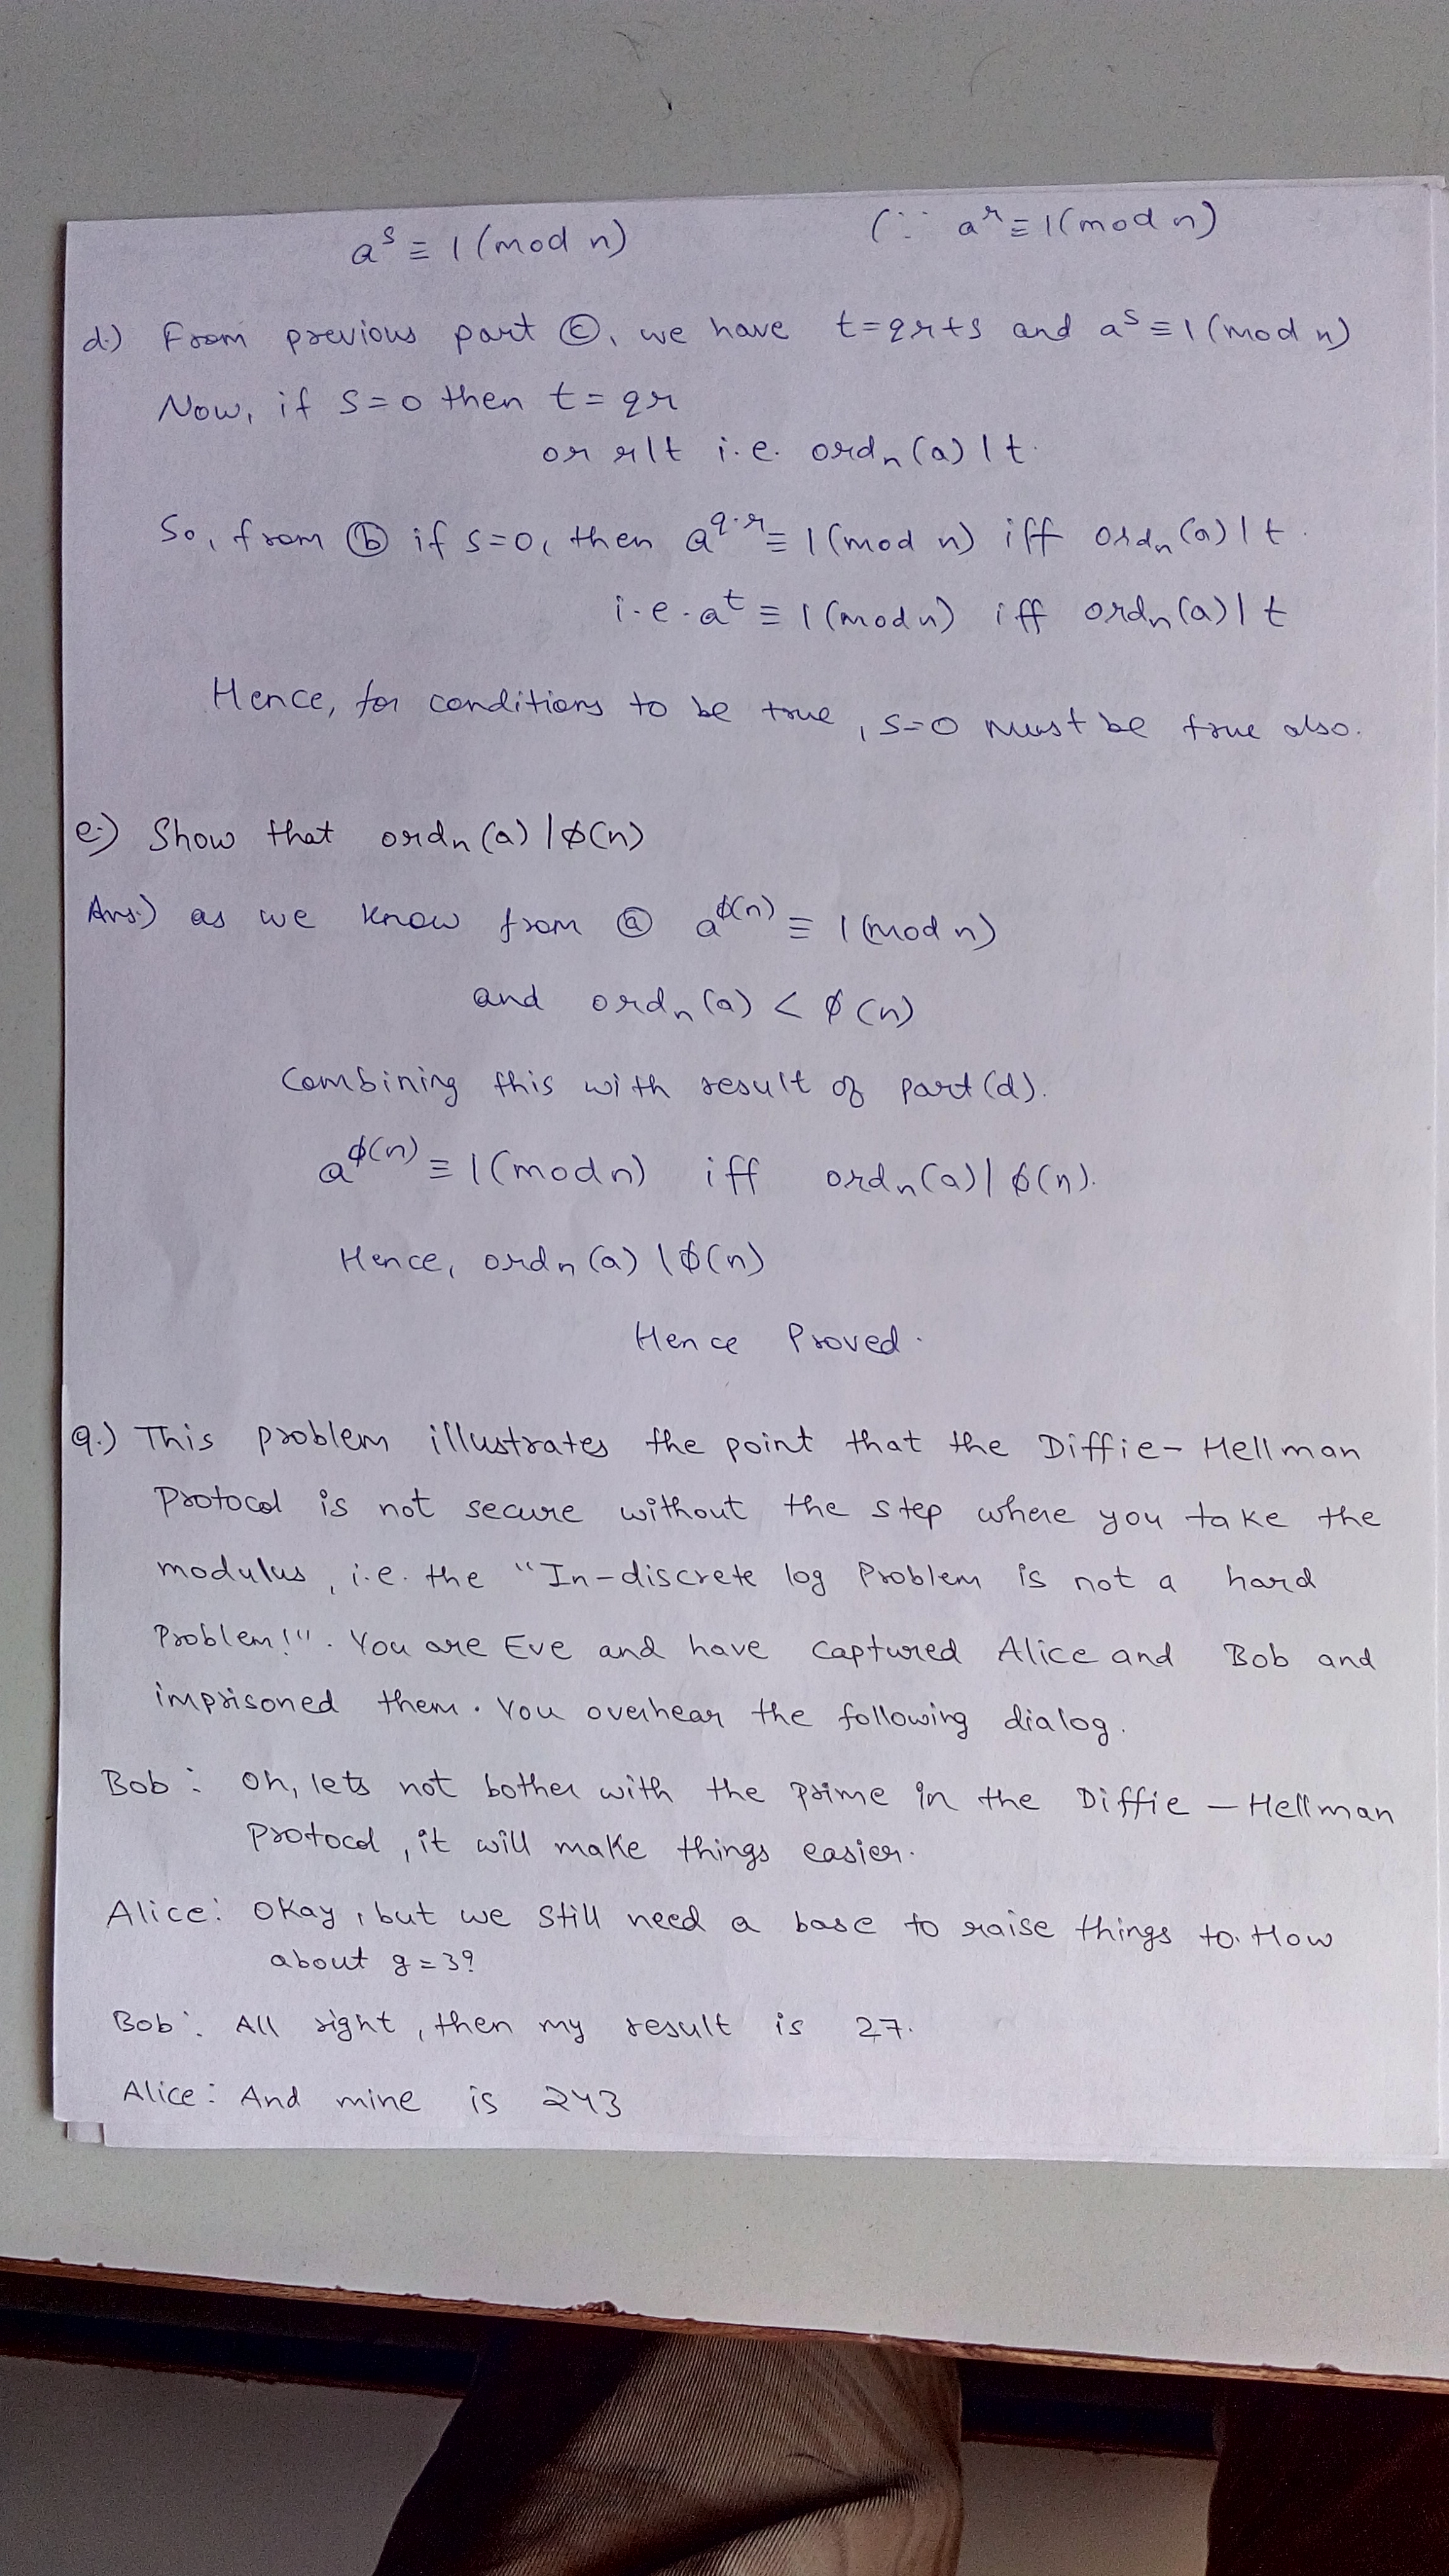 a^s ≡ 1 (mod n) (∵ a^r ≡ 1 (mod n)
d.) From previous part ⓒ, we have t=qr+s and a^s ≡ 1 (mod n)
Now, if s=0 then t = qr
or r|t i.e. ord_n(a) | t.
So, from ⓑ if s=0, then a^{q.r} ≡ 1 (mod n) iff ord_n(a) | t.
i.e. a^t ≡ 1 (mod n) iff ord_n(a) | t
Hence, for conditions to be true, s=0 must be true also.
e.) Show that ord_n(a) | ϕ(n)
Ans.) as we know from ⓐ a^{ϕ(n)} ≡ 1 (mod n)
and ord_n(a) < ϕ(n)
Combining this with result of part (d).
a^{ϕ(n)} ≡ 1 (mod n) iff ord_n(a) | ϕ(n).
Hence, ord_n(a) | ϕ(n)
Hence Proved.
9.) This problem illustrates the point that the Diffie-Hellman
Protocol is not secure without the step where you take the
modulus, i.e. the "In-discrete log Problem is not a hard
Problem!". You are Eve and have captured Alice and Bob and
imprisoned them. You overhear the following dialog.
Bob: Oh, lets not bother with the prime in the Diffie-Hellman
protocol, it will make things easier.
Alice: Okay, but we still need a base to raise things to. How
about g=3?
Bob: All right, then my result is 27.
Alice: And mine is 243